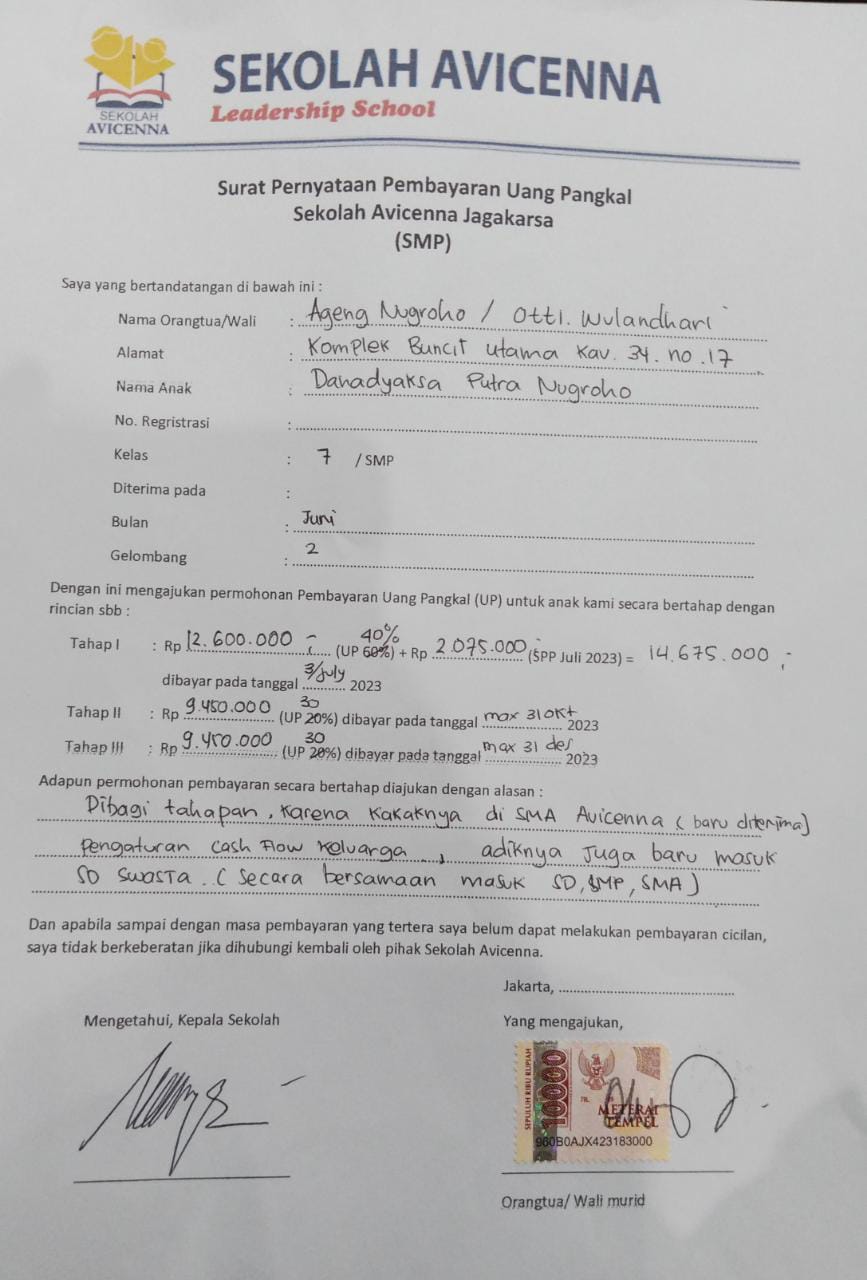 SEKOLAH
AVICENNA
SEKOLAH AVICENNA
Leadership School
Surat Pernyataan Pembayaran Uang Pangkal
Sekolah Avicenna Jagakarsa
(SMP)
Saya yang bertandatangan di bawah ini :
Nama Orangtua/Wali : Ageng Nugroho / Otti. Wulandhari
Alamat : Komplek Buncit Utama Kav. 34. no. 17
Nama Anak : Danadyaksa Putra Nugroho
No. Regristrasi :
Kelas : 7 / SMP
Diterima pada :
Bulan : Juni
Gelombang : 2
Dengan ini mengajukan permohonan Pembayaran Uang Pangkal (UP) untuk anak kami secara bertahap dengan
rincian sbb :
Tahap I : Rp 12.600.000,- (UP 60% 40%) + Rp 2.075.000,- (SPP Juli 2023) = 14.675.000,-
dibayar pada tanggal 3/July 2023
Tahap II : Rp 9.450.000 (UP 20% 30) dibayar pada tanggal max 31 Okt 2023
Tahap III : Rp 9.450.000 (UP 20% 30) dibayar pada tanggal max 31 des 2023
Adapun permohonan pembayaran secara bertahap diajukan dengan alasan :
Dibagi tahapan, karena kakaknya di SMA Avicenna (baru diterima)
pengaturan cash flow keluarga, adiknya juga baru masuk
SD swasta. (secara bersamaan masuk SD, SMP, SMA)
Dan apabila sampai dengan masa pembayaran yang tertera saya belum dapat melakukan pembayaran cicilan,
saya tidak berkeberatan jika dihubungi kembali oleh pihak Sekolah Avicenna.
Jakarta,
Mengetahui, Kepala Sekolah
Yang mengajukan,
SEPULUH RIBU RUPIAH
10000
TEL.
METERAI
TEMPEL
960B0AJX423183000
Orangtua/ Wali murid